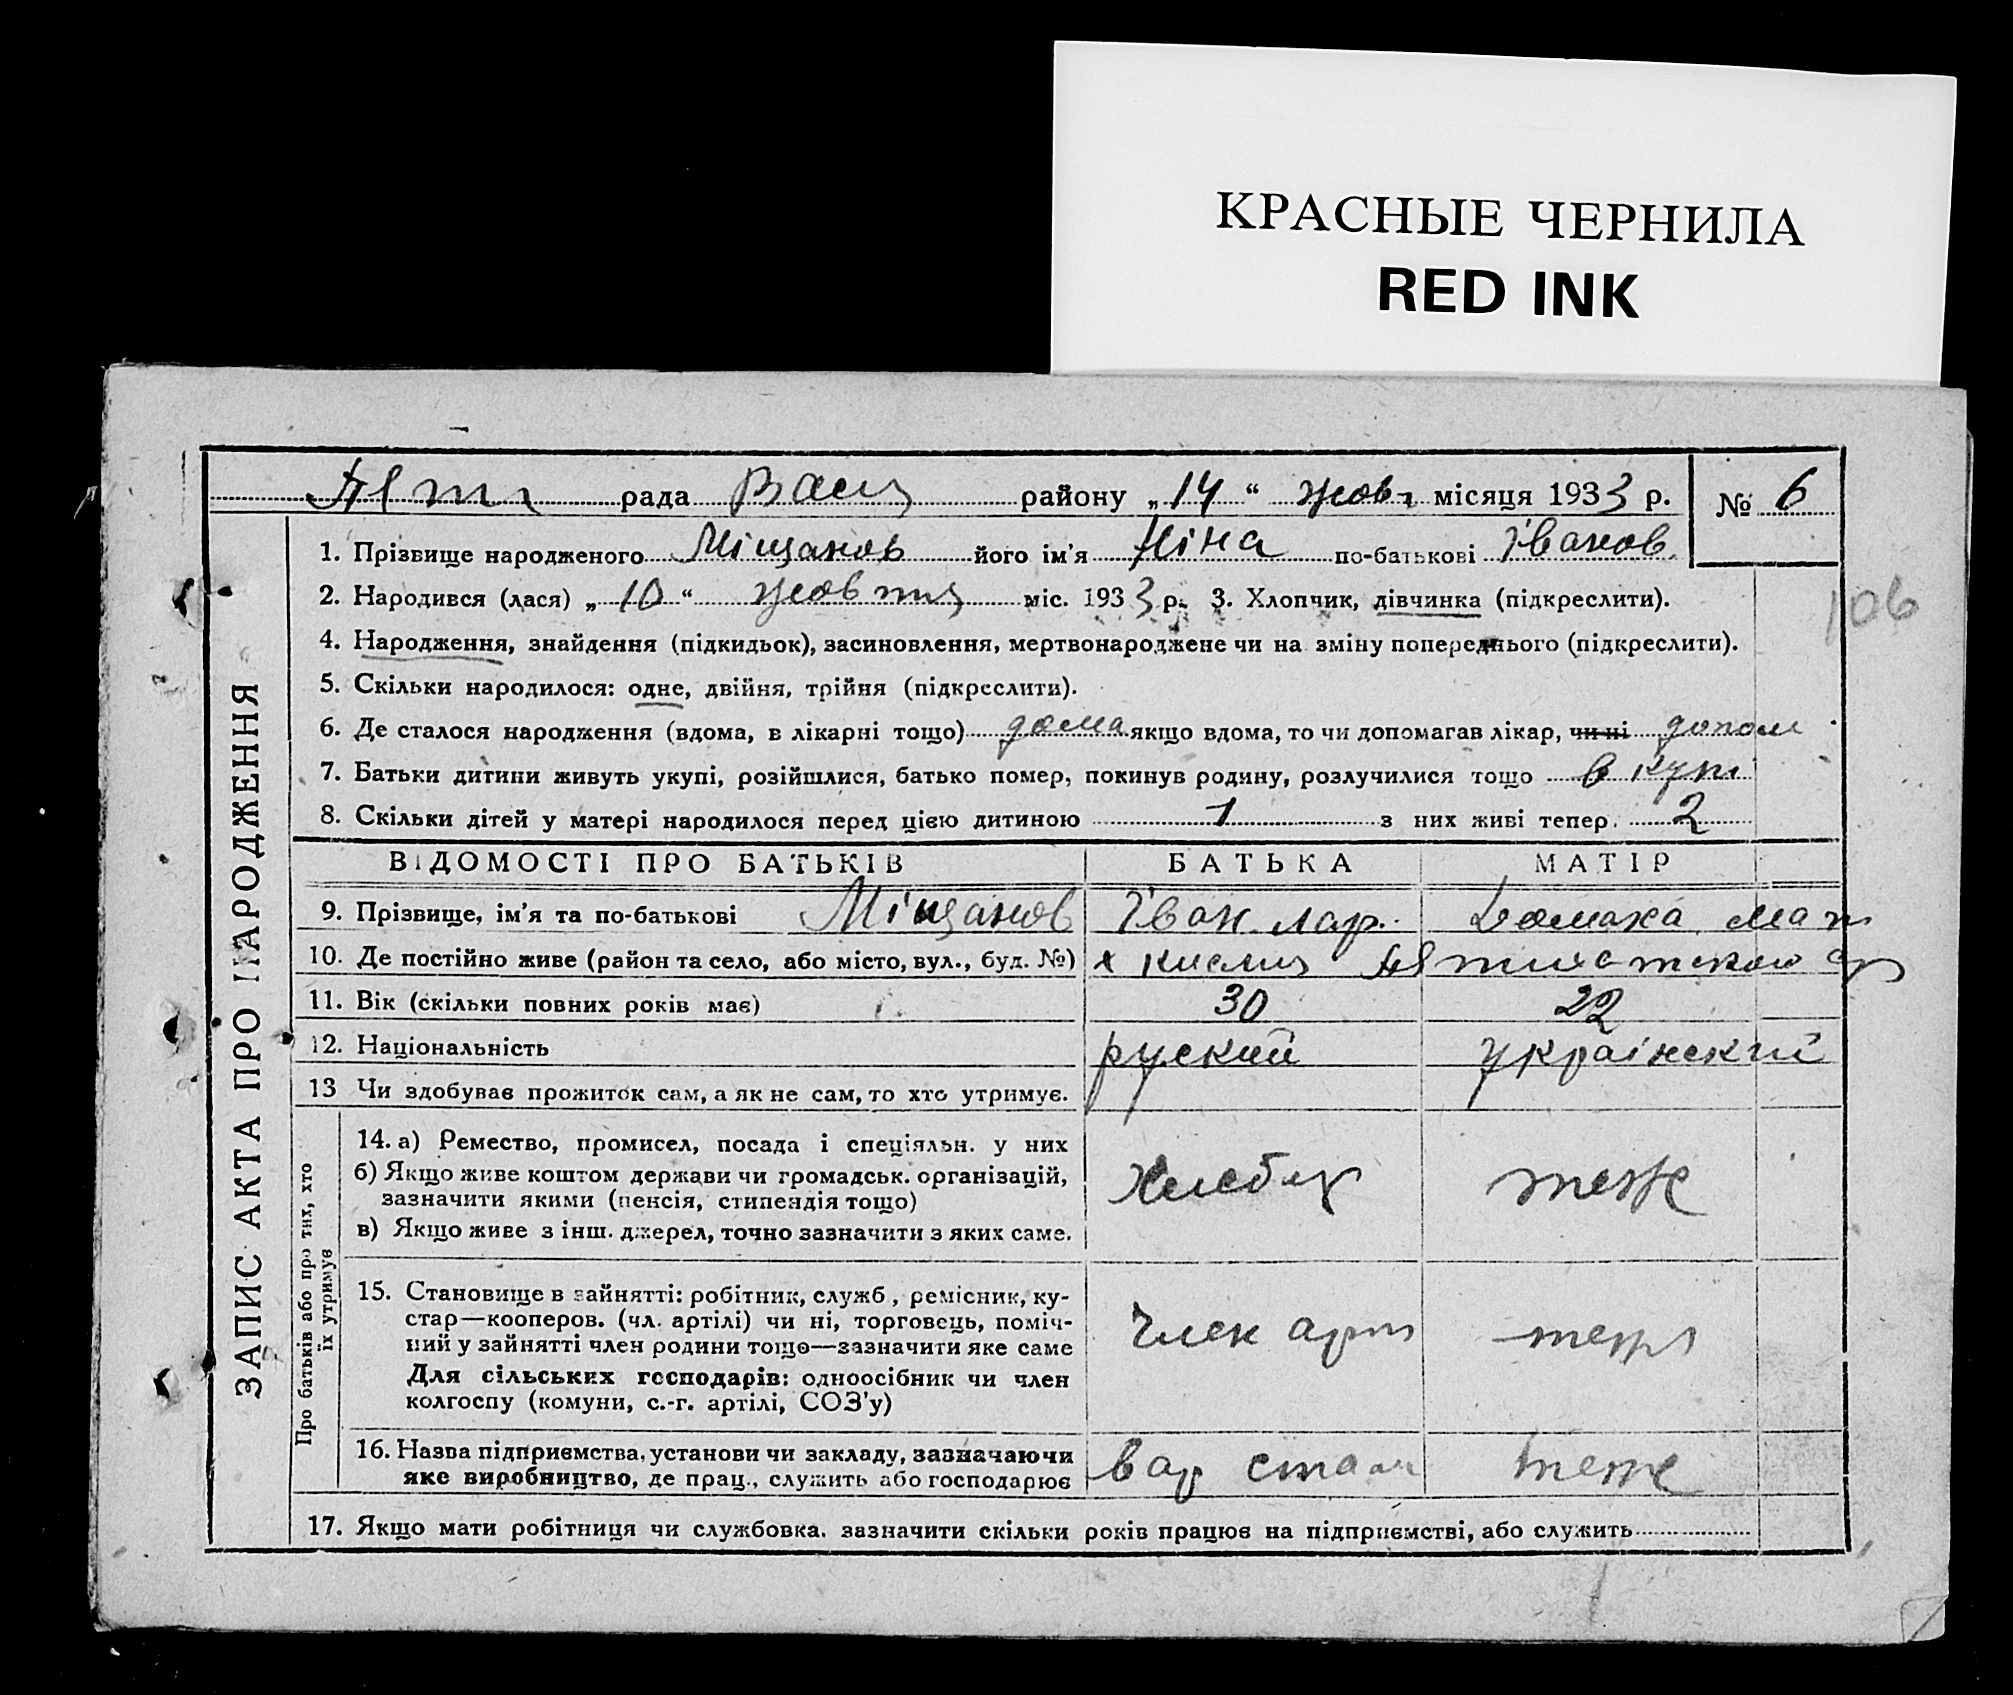 КРАСНЫЕ ЧЕРНИЛА
RED INK
рада Васи району „14“ жовт місяця 1933 р. № 6
1. Прізвище народженого Міщанов його ім'я Ніна по-батькові Іванов
106
2. Народився (лася) „10“ жовтня міс. 1933 р. 3. Хлопчик, дівчинка (підкреслити).
4. Народження, знайдення (підкидьок), засиновлення, мертвонароджене чи на зміну попереднього (підкреслити).
5. Скільки народилося: одне, двійня, трійня (підкреслити).
6. Де сталося народження (вдома, в лікарні тощо) дома якщо вдома, то чи допомагав лікар, чи ні допом
7. Батьки дитини живуть укупі, розійшлися, батько помер, покинув родину, розлучилися тощо в купі
8. Скільки дітей у матері народилося перед цією дитиною 1 з них живі тепер 2
ВІДОМОСТІ ПРО БАТЬКІВ БАТЬКА МАТІР
9. Прізвище, ім'я та по-батькові Міщанов Іван Лар. Домаха Мат
10. Де постійно живе (район та село, або місто, вул., буд. №) х
11. Вік (скільки повних років має) 30 22
12. Національність руский українский
13 Чи здобуває прожиток сам, а як не сам, то хто утримує.
14. а) Ремество, промисел, посада і спеціяльн. у них
б) Якщо живе коштом держави чи громадськ. організацій,
зазначити якими (пенсія, стипендія тощо) Хлебоу теж
в) Якщо живе з інш. джерел, точно зазначити з яких саме.
15. Становище в зайнятті: робітник, служб, ремісник, ку-
стар—кооперов. (чл. артілі) чи ні, торговець, поміч- Член арт теж
ний у зайнятті член родини тощо—зазначити яке саме
Для сільських господарів: одноосібник чи член
колгоспу (комуни, с.-г. артілі, СОЗ'у)
16. Назва підприємства, установи чи закладу, зазначаючи
яке виробництво, де прац., служить або господарює теж
17. Якщо мати робітниця чи службовка, зазначити скільки років працює на підприємстві, або служить
ЗАПИС АКТА ПРО НАРОДЖЕННЯ
Про батьків або про тих, хто
їх утримує